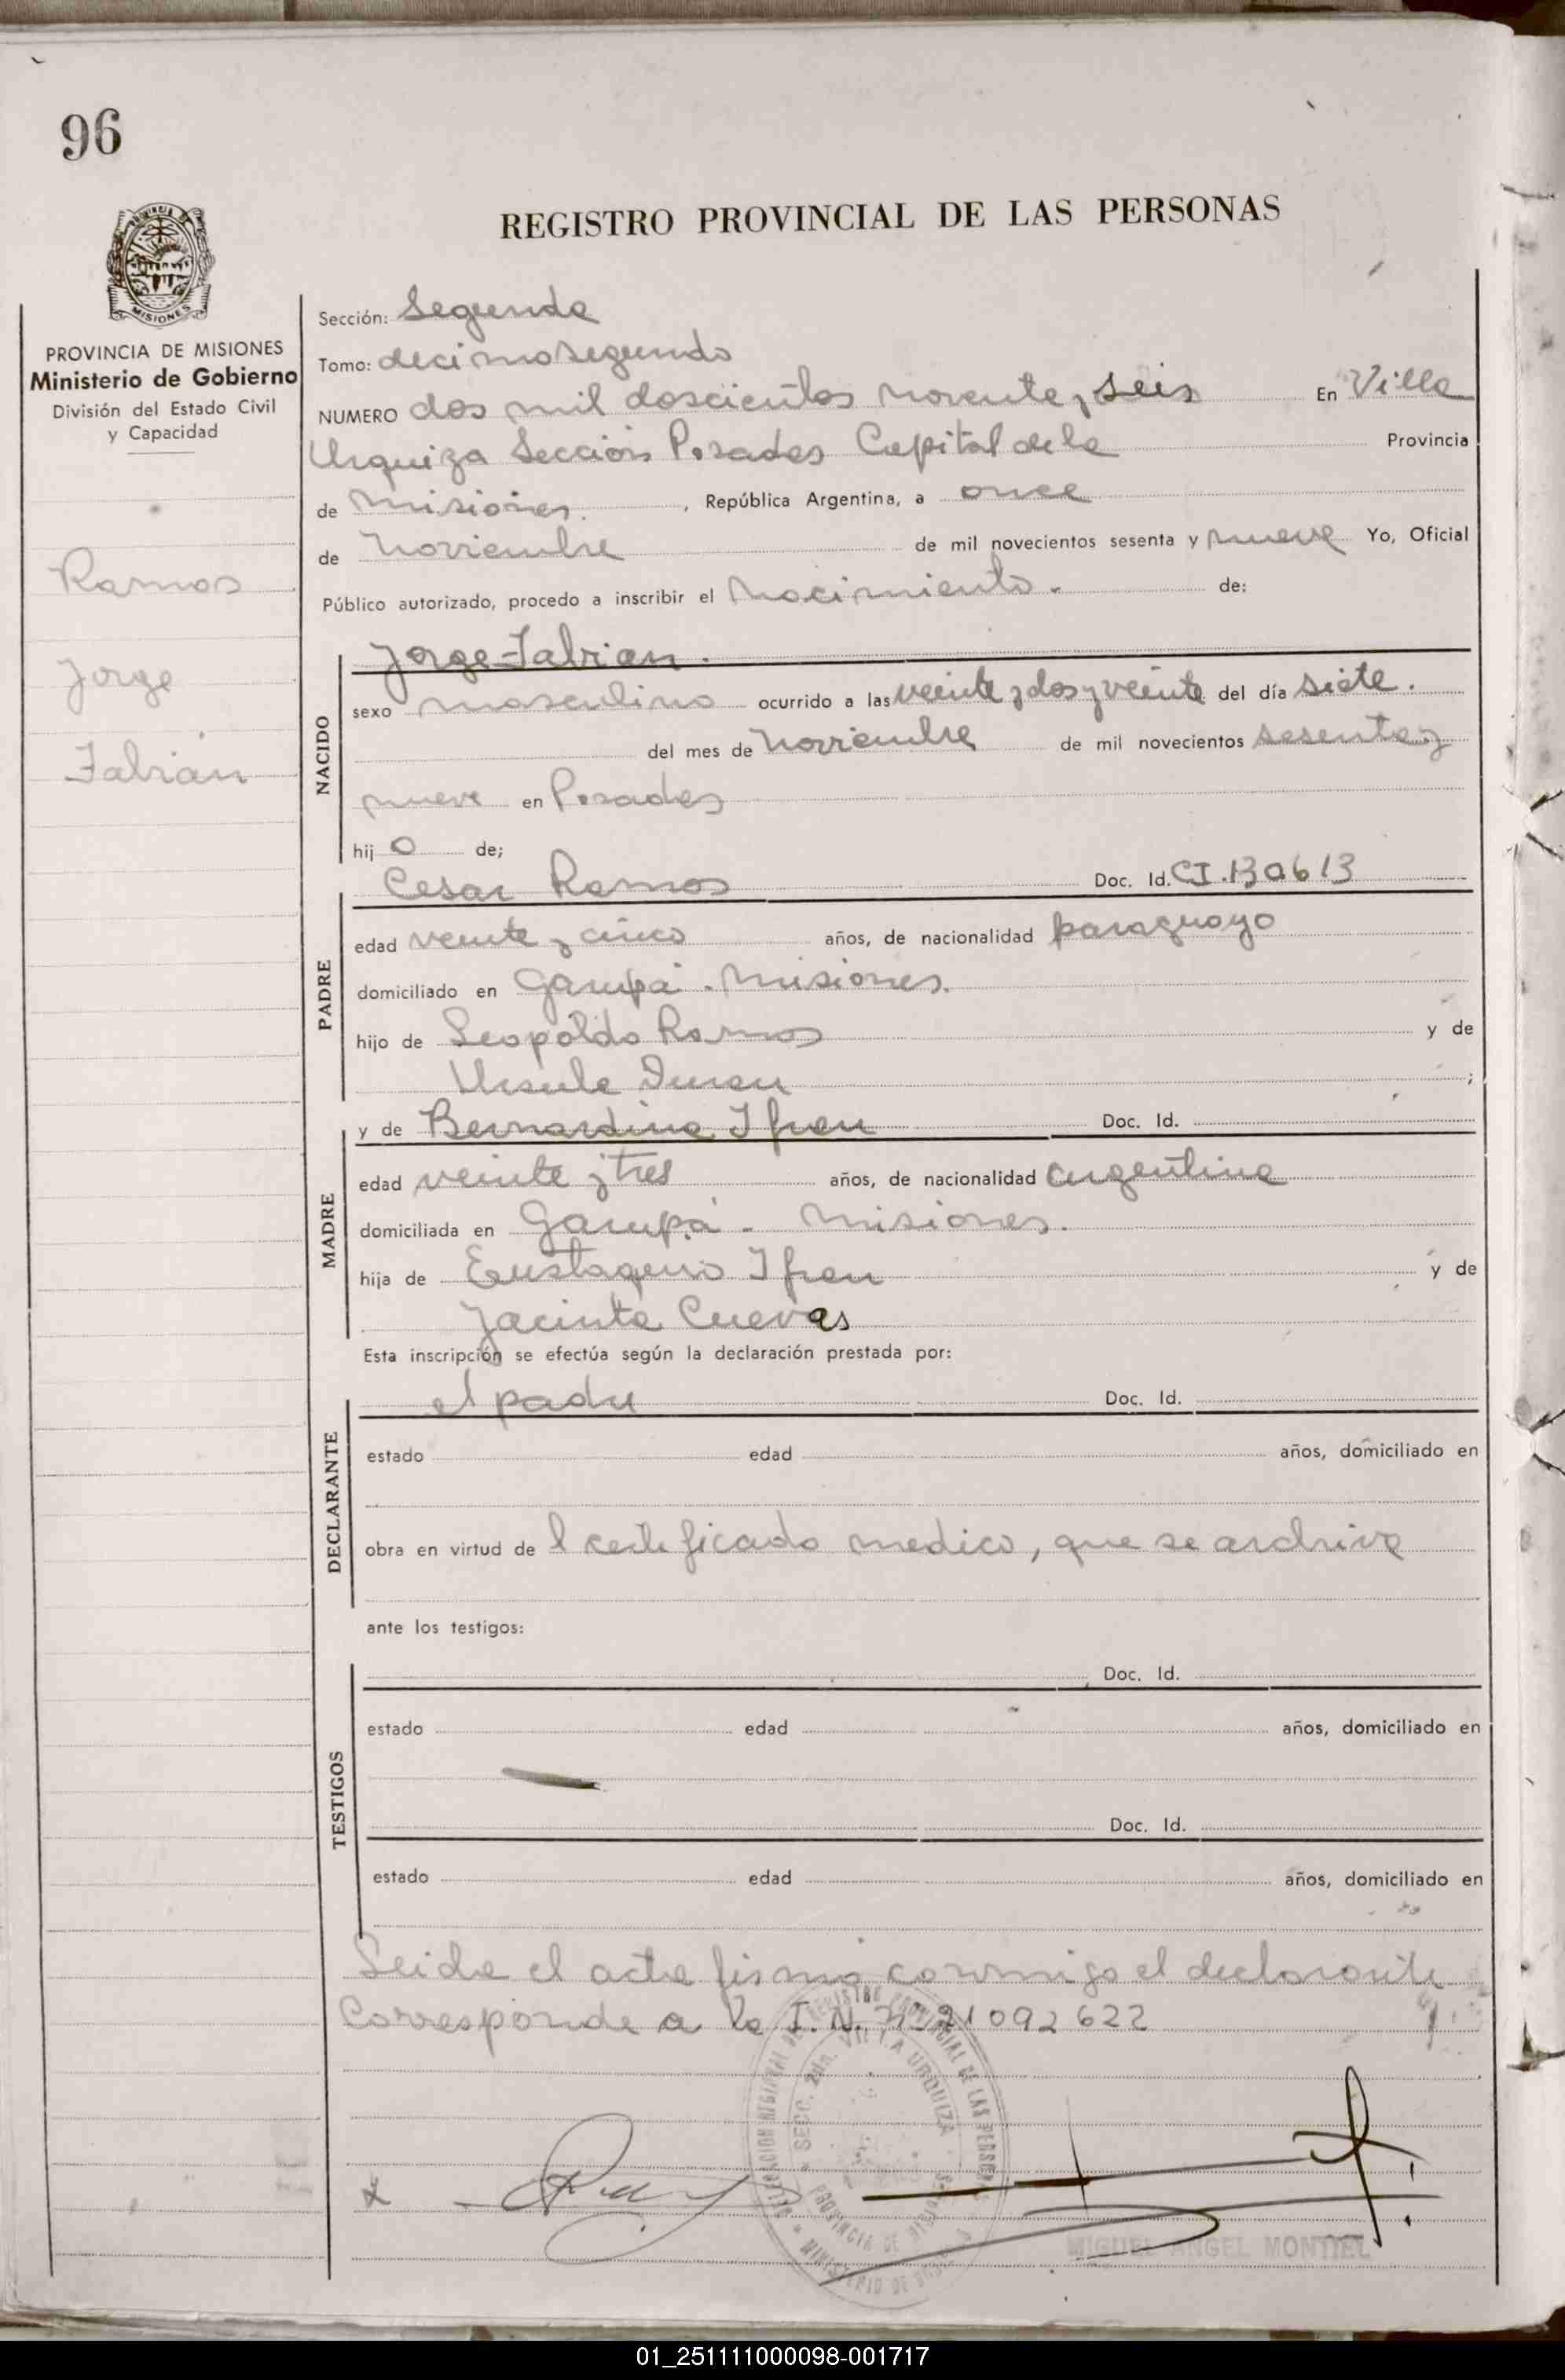 96
REGISTRO PROVINCIAL DE LAS PERSONAS
MISIONES
PROVINCIA DE MISIONES
Ministerio de Gobierno
División del Estado Civil
y Capacidad
Ramos
Jorge
Fabián
Sección: Segunda
Tomo: decimosegundo
NUMERO dos mil doscientos noventa y seis En Villa
Urquiza Sección Posadas Capital de la Provincia
de Misiones. , República Argentina, a once
de noviembre de mil novecientos sesenta y nueve Yo, Oficial
Público autorizado, procedo a inscribir el Nacimiento. de:
NACIDO
Jorge Fabian.
sexo masculino ocurrido a las veinte y dos y veinte del día siete.
del mes de noviembre de mil novecientos sesenta y
nueve en Posadas
hij o de;
PADRE
Cesar Ramos Doc. Id. CI.130613
edad veinte y cinco años, de nacionalidad paraguayo
domiciliado en Garupá. Misiones.
hijo de Leopoldo Ramos y de
Ursula ;
MADRE
y de Bernardina Ifran Doc. Id.
edad veinte y tres años, de nacionalidad argentina
domiciliada en Garupá - Misiones.
hija de Eustaquio Ifran y de
Jacinta Cuevas
Esta inscripción se efectúa según la declaración prestada por:
DECLARANTE
el padre Doc. Id.
estado edad años, domiciliado en
obra en virtud de l certificado medico, que se archiva
ante los testigos:
TESTIGOS
Doc. Id.
estado edad años, domiciliado en
Doc. Id.
estado edad años, domiciliado en
Leida el acta firma conmigo el declarante
Corresponde a la I. N. Nº 21092622
SECC. 2da. VILLA URQUIZA
MIGUEL ANGEL MONTIEL
01_251111000098-001717